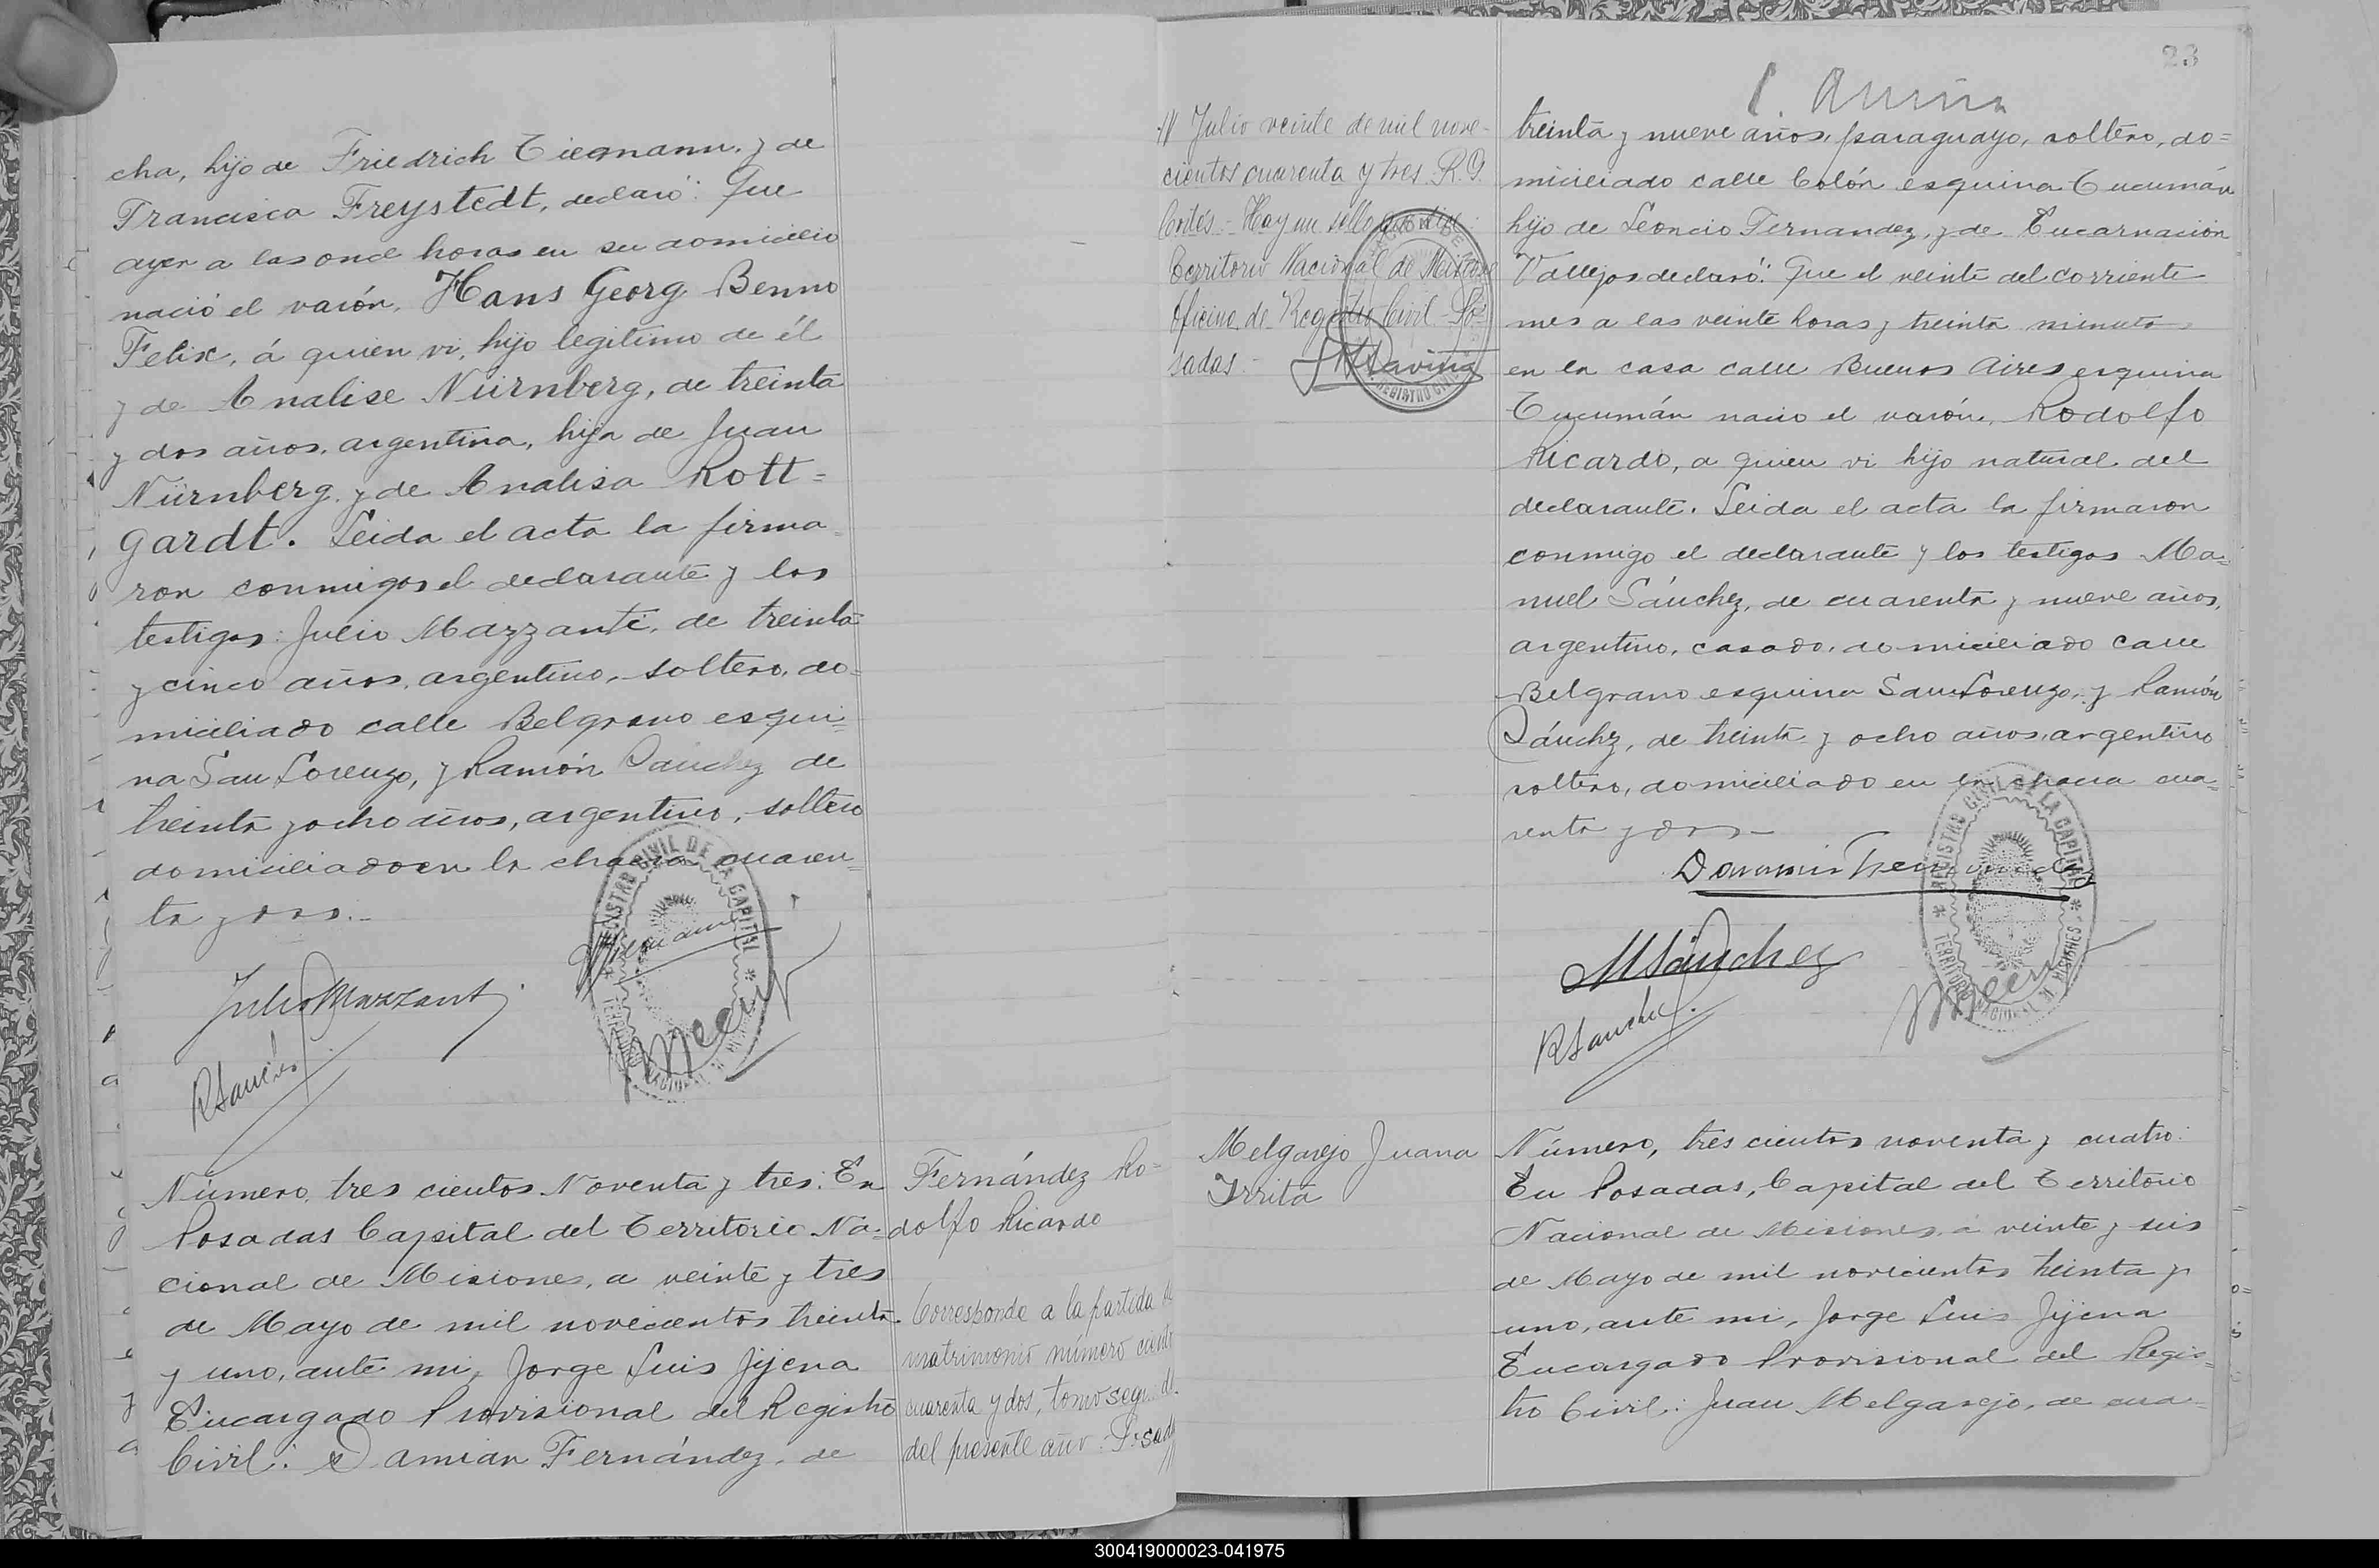 cha, hijo de Friedrich Tiegmann, y de
Francisca Freystedt, declaró: Que
ayer a las once horas en su domicilio
nació el varón, Hans Georg Benno
Felix, á quien vi, hijo legítimo de él
y de Analise Nürnberg, de treinta
y dos años, argentina, hija de Juan
Nürnberg, y de Analisa Rott=
gardt. Leida el acta la firma=
ron conmigo el declarante y los
testigos: Julio Mazzanti, de treinta
y cinco años, argentino, soltero, do=
miciliado calle Belgrano esqui=
na San Lorenzo, y Ramón Sanchez de
treinta y ocho años, argentino, soltero
domiciliado en la chacra cuaren=
ta y dos.-
Julio Mazzanti
RSanchez
REGISTRO CIVIL DE LA CAPITAL
TERRITORIO NACIONAL DE MISIONES
Número, tres cientos Noventa y tres: En
Posadas Capital del Territorio Na=
cional de Misiones, a veinte y tres
de Mayo de mil novecientos treinta
y uno, ante mi, Jorge Luis Jijena
Encargado Provisional del Registro
Civil: Damian Fernández, de
Fernández Ro=
dolfo Ricardo
Corresponde a la partida de
matrimonio número ciento
cuarenta y dos, tomo segundo
del presente año. Posadas
// Julio veinte de mil nove-
cientos cuarenta y tres. R. G.
Cortés.- Hay un sello que dice:
Territorio Nacional de Misiones
Oficina de Registro Civil - Po=
sadas.-
23
treinta y nueve años, paraguayo, soltero, do=
miciliado calle Colón esquina Tucumán
hijo de Leoncio Fernandez, y de Encarnación
Vallejos declaró: Que el veinte del corriente
mes a las veinte horas y treinta minutos
en la casa calle Buenos Aires esquina
Tucumán nació el varón, Rodolfo
Ricardo, a quien vi hijo natural del
declarante. Leida el acta la firmaron
conmigo el declarante y los testigos Ma=
nuel Sánchez, de cuarenta y nueve años,
argentino, casado, domiciliado calle
Belgrano esquina San Lorenzo, y Ramón
Sánchez, de treinta y ocho años, argentino
soltero, domiciliado en la chacra cua=
renta y dos-
Damian Fernandez
MSánchez
RSanchez
REGISTRO CIVIL DE LA CAPITAL
TERRITORIO NACIONAL DE MISIONES
Melgarejo Juana
Irrita
Número, tres cientos noventa y cuatro:
En Posadas, Capital del Territorio
Nacional de Misiones, a veinte y seis
de Mayo de mil novecientos treinta y
uno, ante mi, Jorge Luis Jijena
Encargado Provisional del Regis=
tro Civil: Juan Melgarejo, de cua=
300419000023-041975